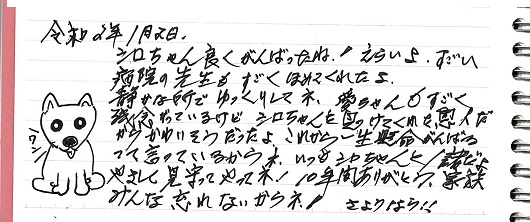 令和2年1月2日.
シロちゃん良くがんばったね.! えらいよ. すごい
病院の先生もすごくほめてくれたよ.
静かな所でゆっくりしてネ. 愛ちゃんもすごく
ているけど シロちゃんを見つけてくれた恩人だ
からかわいそうだったよ これから一生懸命がんばる
って言っているからネ. いつもシロちゃんと一諸だよ
やさしく見守ってやってネ! 10年間ありがとう. 家族
みんな忘れないからネ! さようなら!!
ワン